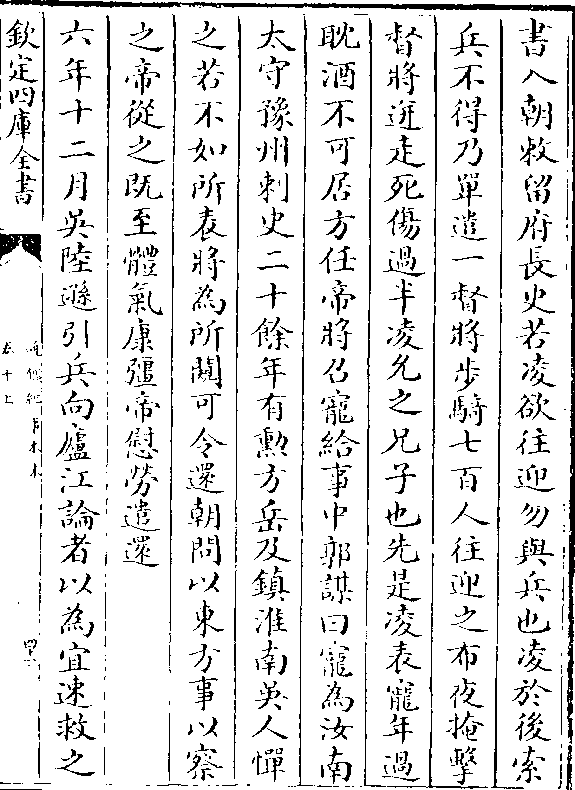 書入朝敕留府長史若凌欲往迎勿與兵也凌於後索
兵不得乃單遣一督將步騎七百人往迎之布夜掩擊
督將迸走死傷過半凌允之兄子也先是凌表寵年過
耽酒不可居方任帝將召寵給事中郭謀曰寵為汝南
太守豫州刺史二十餘年有勲方岳及鎮淮南吳人憚
之若不如所表將為所闚可令還朝問以東方事以察
之帝從之既至體氣康彊帝慰勞遣還
六年十二月吳陸遜引兵向廬江論者以為宜速救之
欽定四庫全書